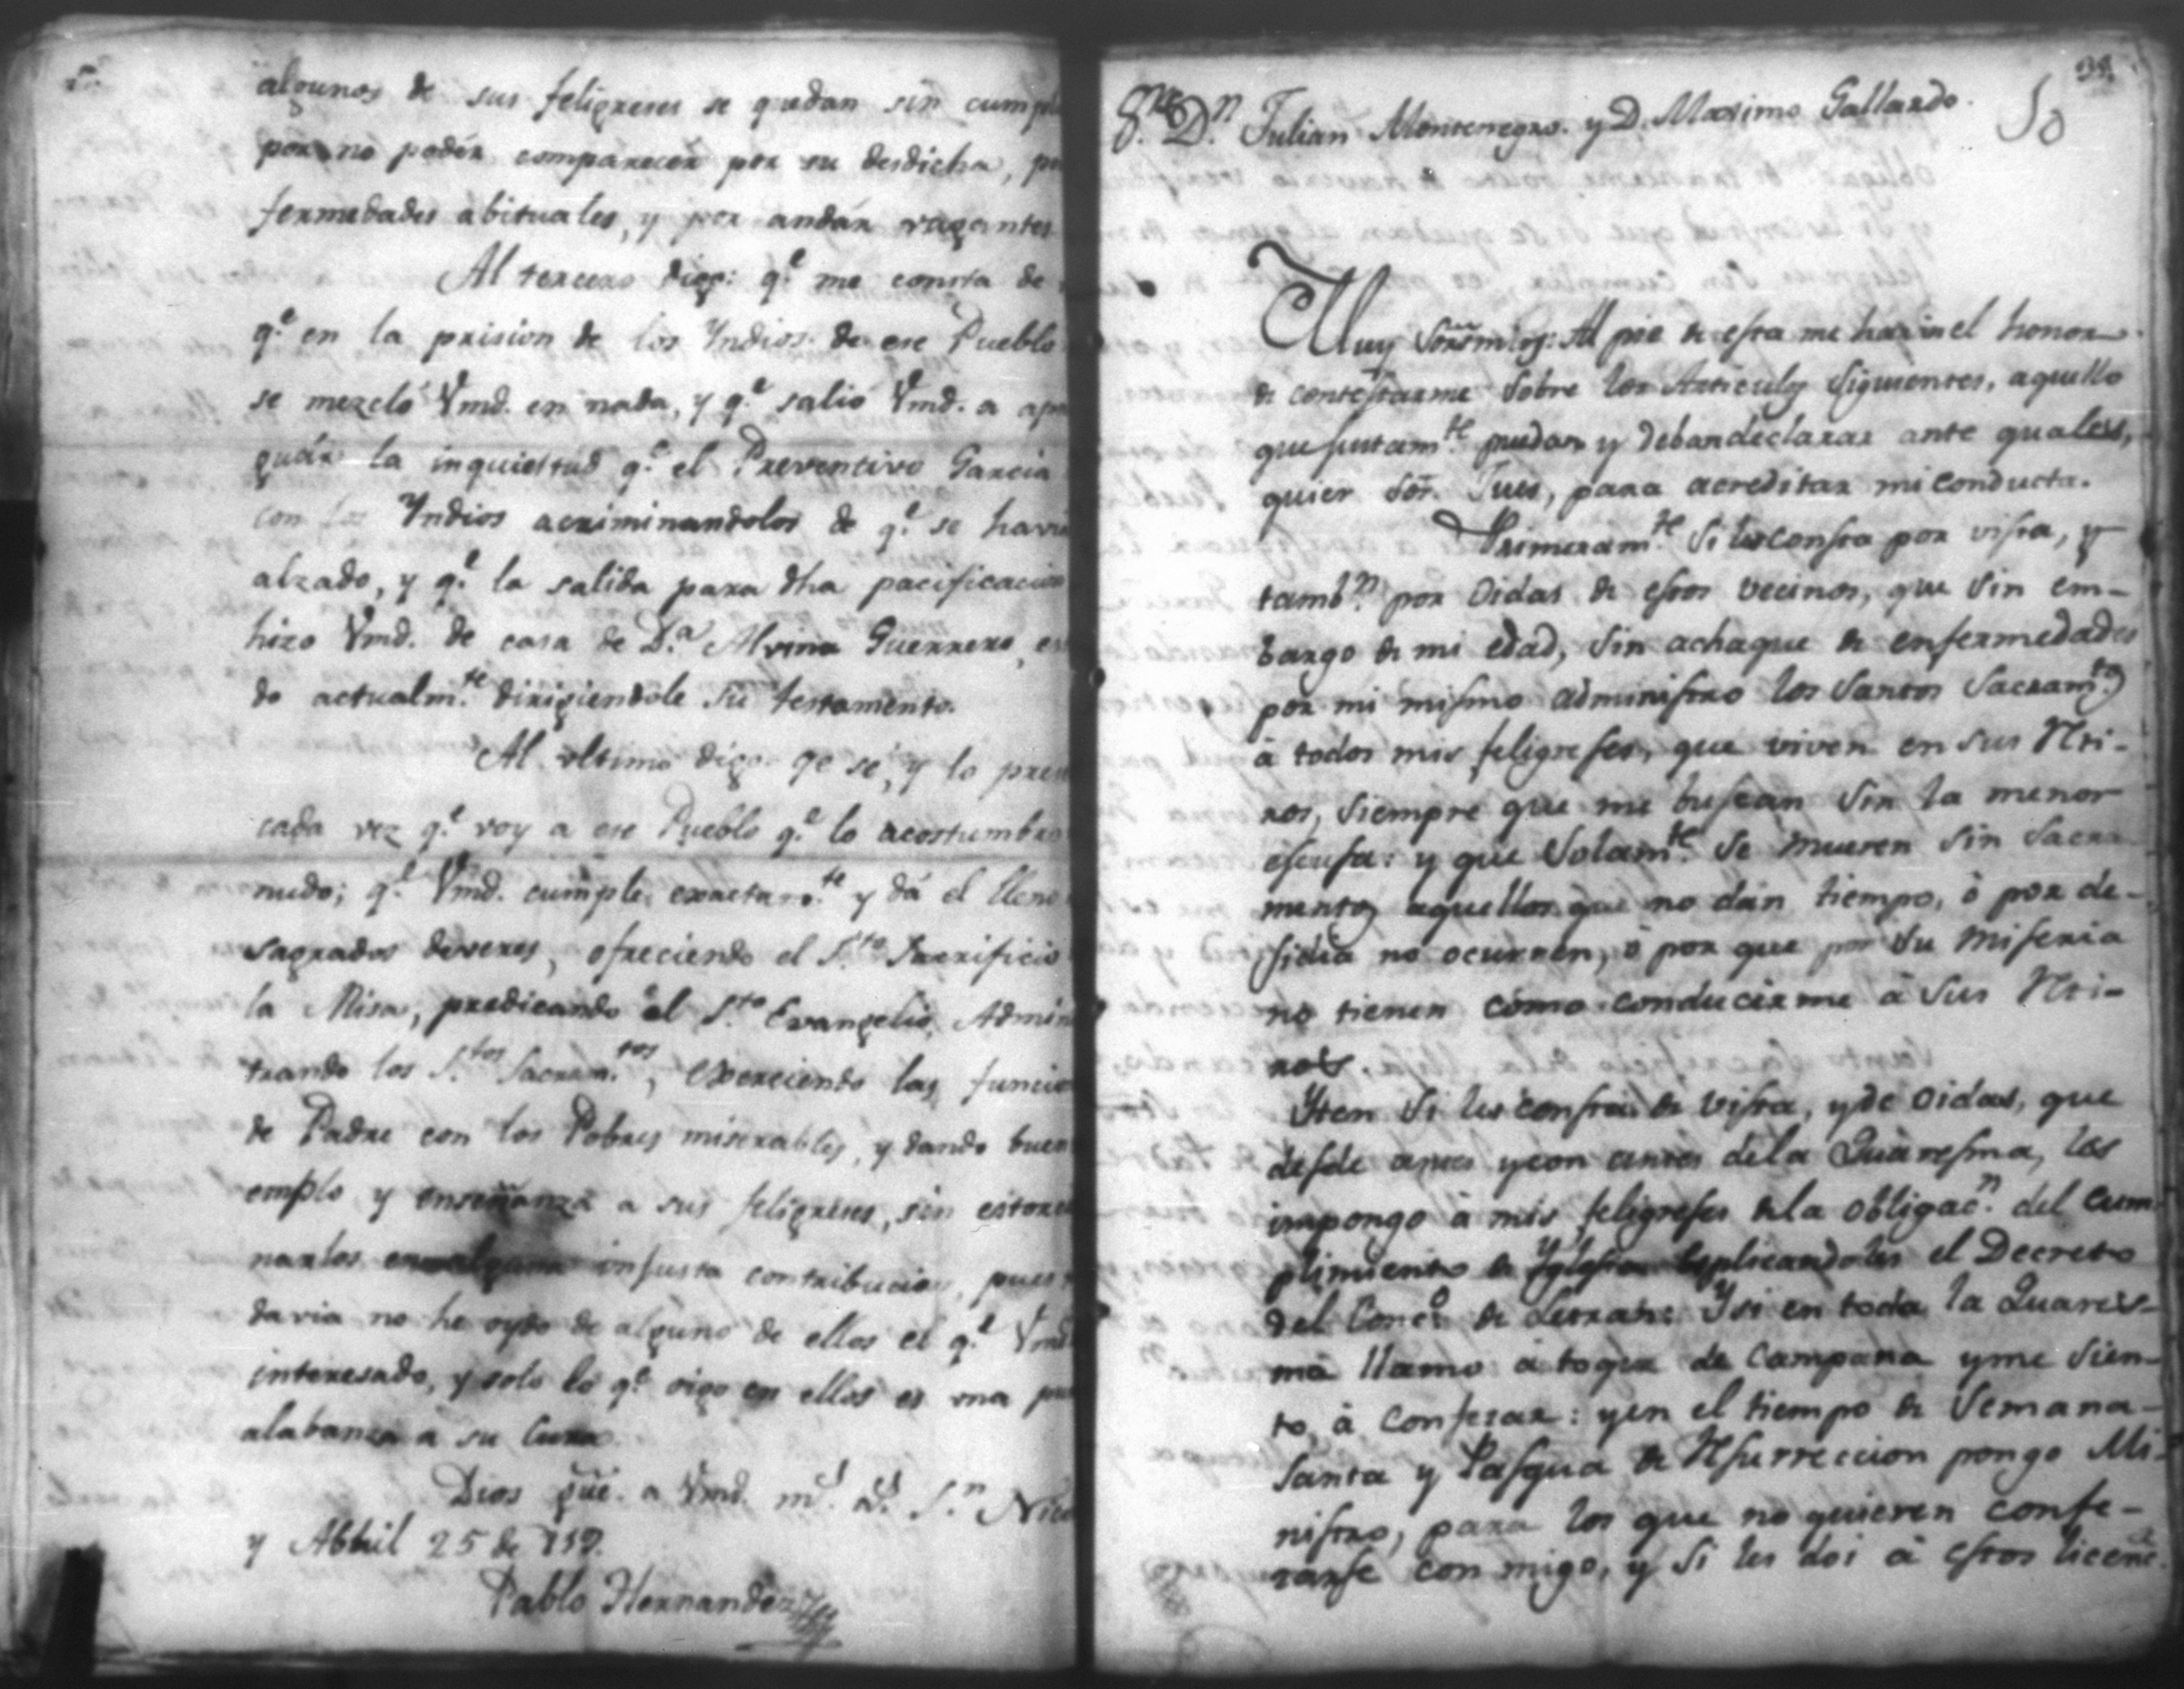 algunos de sus feligreses se quedan sin cumpli
por no podér comparecer por su desdicha, po
fermedades abituales, y por andár vagantes
Al tercero digo: q.e me consta de
q.e en la prision de los Yndios de ese Pueblo
se mezcló Vmd. en nada, y q.e salió Vmd. a apa
guár la inquietud q.e el Preventivo Garcia
con los Yndios acriminandolos de q.e se havia
alzado, y q.e la salida para dha pacificacion
hizo Vmd. de casa de D.a Guerrero, es
do actualm.te dirigiendole su testamento.
Al vltimo digo qe sé, y lo pres
cada vez q.e voy a ese Pueblo q.e lo acostumbro
nudo; q.e Vmd. cumple exactam.te y dá el lleno
sagrados deveres, ofreciendo el S.to Sacrificio
la Misa, predicando el S.to Evangelio, Admin
trando los S.tos Sacram.tos, exerciendo las funcio
de Padre con los Pobres miserables, y dando buen
emplo y enseñanza a sus feligreses, sin estorc
narlos en alguna injusta contribucion, pues t
davia no he oydo de alguno de ellos el q.e Vmd
interesado, y solo lo q.e oigo en ellos es vna pu
alabanza a su Cura.
Dios gũe. a Vmd. m.s a.s S.n Nico
y Abbril 25 de
Pablo Hernandez
38
S.res D.n Julian Montenegro. y D. Maximo Gallardo.
50
Muy Sores mios: Al pie de esta me harán el honor
de contestarme sobre los Articulos siguientes, aquello
que justam.te puedan y deban declarar ante quales,
quier Sor. Jues, para acreditar mi conducta.
Primeram.te Si les consta por vista, y
tamb.n por oidas de estos vecinos, que sin em-
bargo de mi edad, sin achaque de enfermedades
por mi mismo administro los Santos Sacram.tos
à todos mis feligreses, que viven en sus Reti-
ros, siempre que me buscan sin la menor
escusa: y que solam.te se mueren sin Sacra
mentos aquellos que no dán tiempo, ò por de-
sidia no ocurren, ò por que por su miseria
no tienen cómo conducirme à sus Reti-
ros.
Yten Si les consta de vista, y de oidas, que
desde antes y con antes de la Quaresma, les
impongo à mis feligreses de la obligac.n del cum
plimiento de Yglesia explicandoles el Decreto
del Conc.o de Letran: Y si en toda la Quares-
ma llamo à toque de Campana y me sien-
to à confesar: y en el tiempo de Semana-
Santa y Pasqua de Resurreccion pongo Mi-
nistro, para los que no quieren confe-
sarse con migo, y si les doi à estos licenc.a